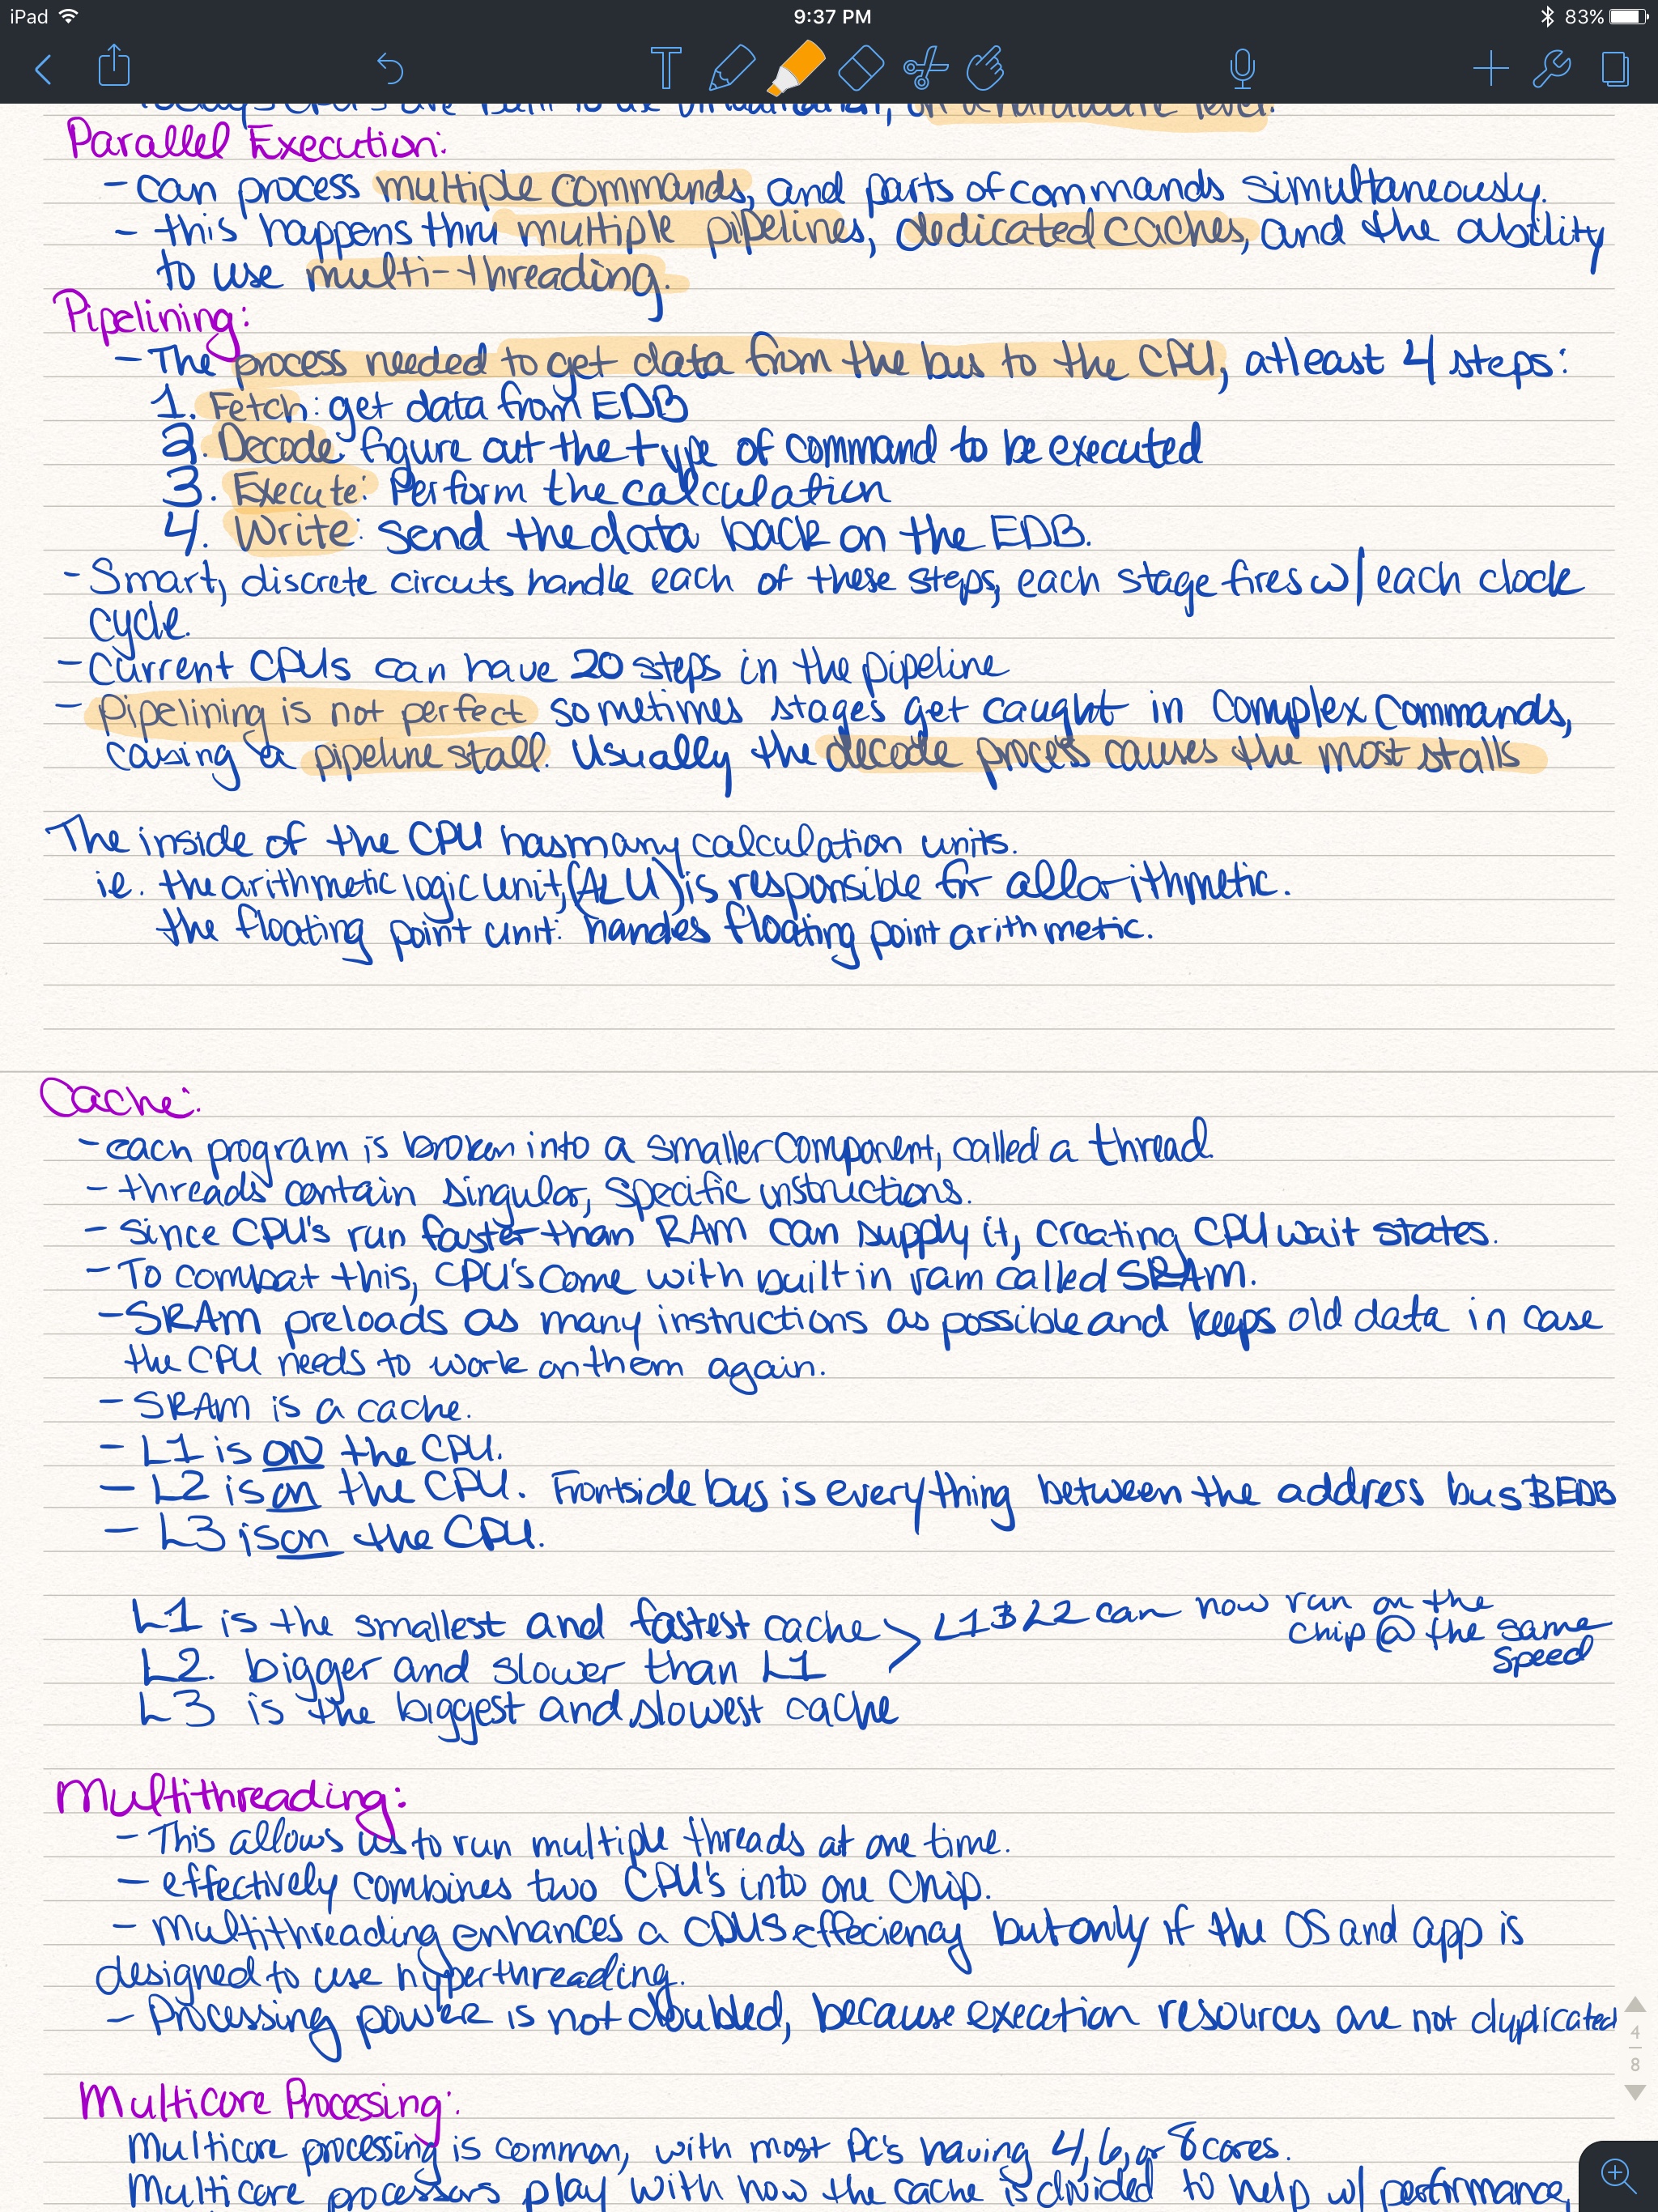 iPad 9:37 PM 83%
T
today's CPU's are built to use virtualization, on a hardware level.
Parallel Execution:
- can process multiple commands, and parts of commands simultaneously.
- this happens thru multiple pipelines, dedicated caches, and the ability
to use multi-threading.
Pipelining:
- The process needed to get data from the bus to the CPU, atleast 4 steps:
1. Fetch: get data from EDB
2. Decode: figure out the type of command to be executed
3. Execute: Perform the calculation
4. Write: send the data back on the EDB.
- Smart, discrete circuts handle each of these steps, each stage fires w/ each clock
cycle.
- Current CPUs can have 20 steps in the pipeline
- Pipelining is not perfect sometimes stages get caught in complex commands,
causing a pipeline stall. Usually the decode process causes the most stalls
The inside of the CPU has many calculation units.
ie. the arithmetic logic unit, (ALU) is responsible for all arithmetic.
the floating point unit: handes floating point arithmetic.
Cache:
- each program is broken into a smaller component, called a thread.
- threads contain singular, specific instructions.
- since CPU's run faster than RAM can supply it, creating CPU wait states.
- To combat this, CPU's come with built in ram called SRAM.
- SRAM preloads as many instructions as possible and keeps old data in case
the CPU needs to work on them again.
- SRAM is a cache.
- L1 is ON the CPU.
- L2 is on the CPU. Frontside bus is everything between the address bus & EDB
- L3 is on the CPU.
L1 is the smallest and fastest cache > L1 & L2 can now run on the
chip @ the same
speed
L2. bigger and slower than L1
L3 is the biggest and slowest cache
Multithreading:
- This allows us to run multiple threads at one time.
- effectively combines two CPU's into one chip.
- Multithreading enhances a CPUS effeciency but only if the OS and app is
designed to use hyperthreading.
- Processing power is not doubled, because execution resources are not duplicated
4
8
Multicore Processing:
Multicore processing is common, with most PC's having 4, 6, or 8 cores.
Multicore processors play with how the cache is divided to help w/ performance,